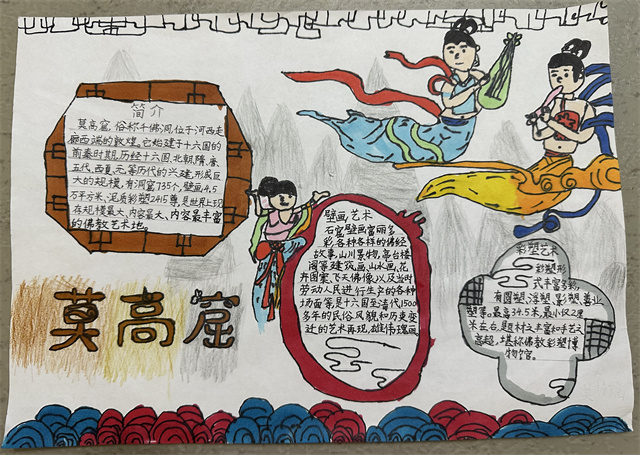 简介
莫高窟,俗称千佛洞,位于河西走
廊西端的敦煌。它始建于十六国的
前秦时期,历经十六国、北朝、隋、唐、
五代、西夏、元等历代的兴建,形成巨
大的规模,有洞窟735个,壁画4.5
万平方米、泥质彩塑2415尊,是世界上现
存规模最大、内容最大、内容最丰富
的佛教艺术地。
莫高窟
壁画艺术
石窟壁画富丽多
彩,各种各样的佛经
故事,山川景物,亭台楼
阁等建筑画、山水画、花
卉图案、飞天佛像以及当时
劳动人民进行生产的各种
场面等,是十六国至清代1500
多年的民俗风貌和历史变
迁的艺术再现,雄伟瑰丽
彩塑艺术
彩塑形
式丰富多彩,
有圆塑、浮塑、影塑、善业
塑等。最高34.5米,最小仅2厘
米左右,题材之丰富和手艺之
高超,堪称佛教彩塑博
物馆。